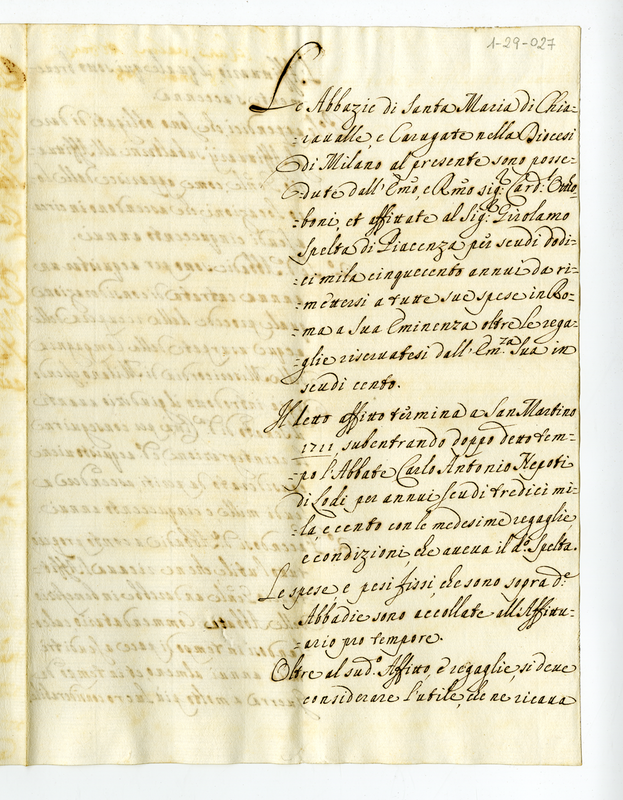 1-29-027
Le Abbazie di Santa Maria di Chia-
-raualle, e Carugate nella Diocesi
di Milano al presente sono posse-
dute dall' Emo, e Rmo sig.r Card.l Otto-
-boni, et affittate al Sig.r Girolamo
Spelta di Piacenza per scudi dodi-
-ci mila cinquecento annui da ri-
-mettersi a tutte sue spese in Ro-
-ma a Sua Eminenza oltre le rega-
-glie riseruatesi dall' Em.za Sua in
scudi cento.
Il detto affitto termina a San Martino
1711, subentrando doppo detto tem-
-po l'Abbate Carlo Antonio Nepoti
di Lodi per annui scudi tredici mi-
-la, e cento con le medesime regaglie,
e condizioni che aueua il d.o Spelta.
Le spese, e pesi fissi, che sono sopra d.e
Abbadie sono accollate all'Affittu-
-ario pro tempore.
Oltre al sud.o Affitto, e regaglie, si deue
considerare l'utile, che ne ricaua